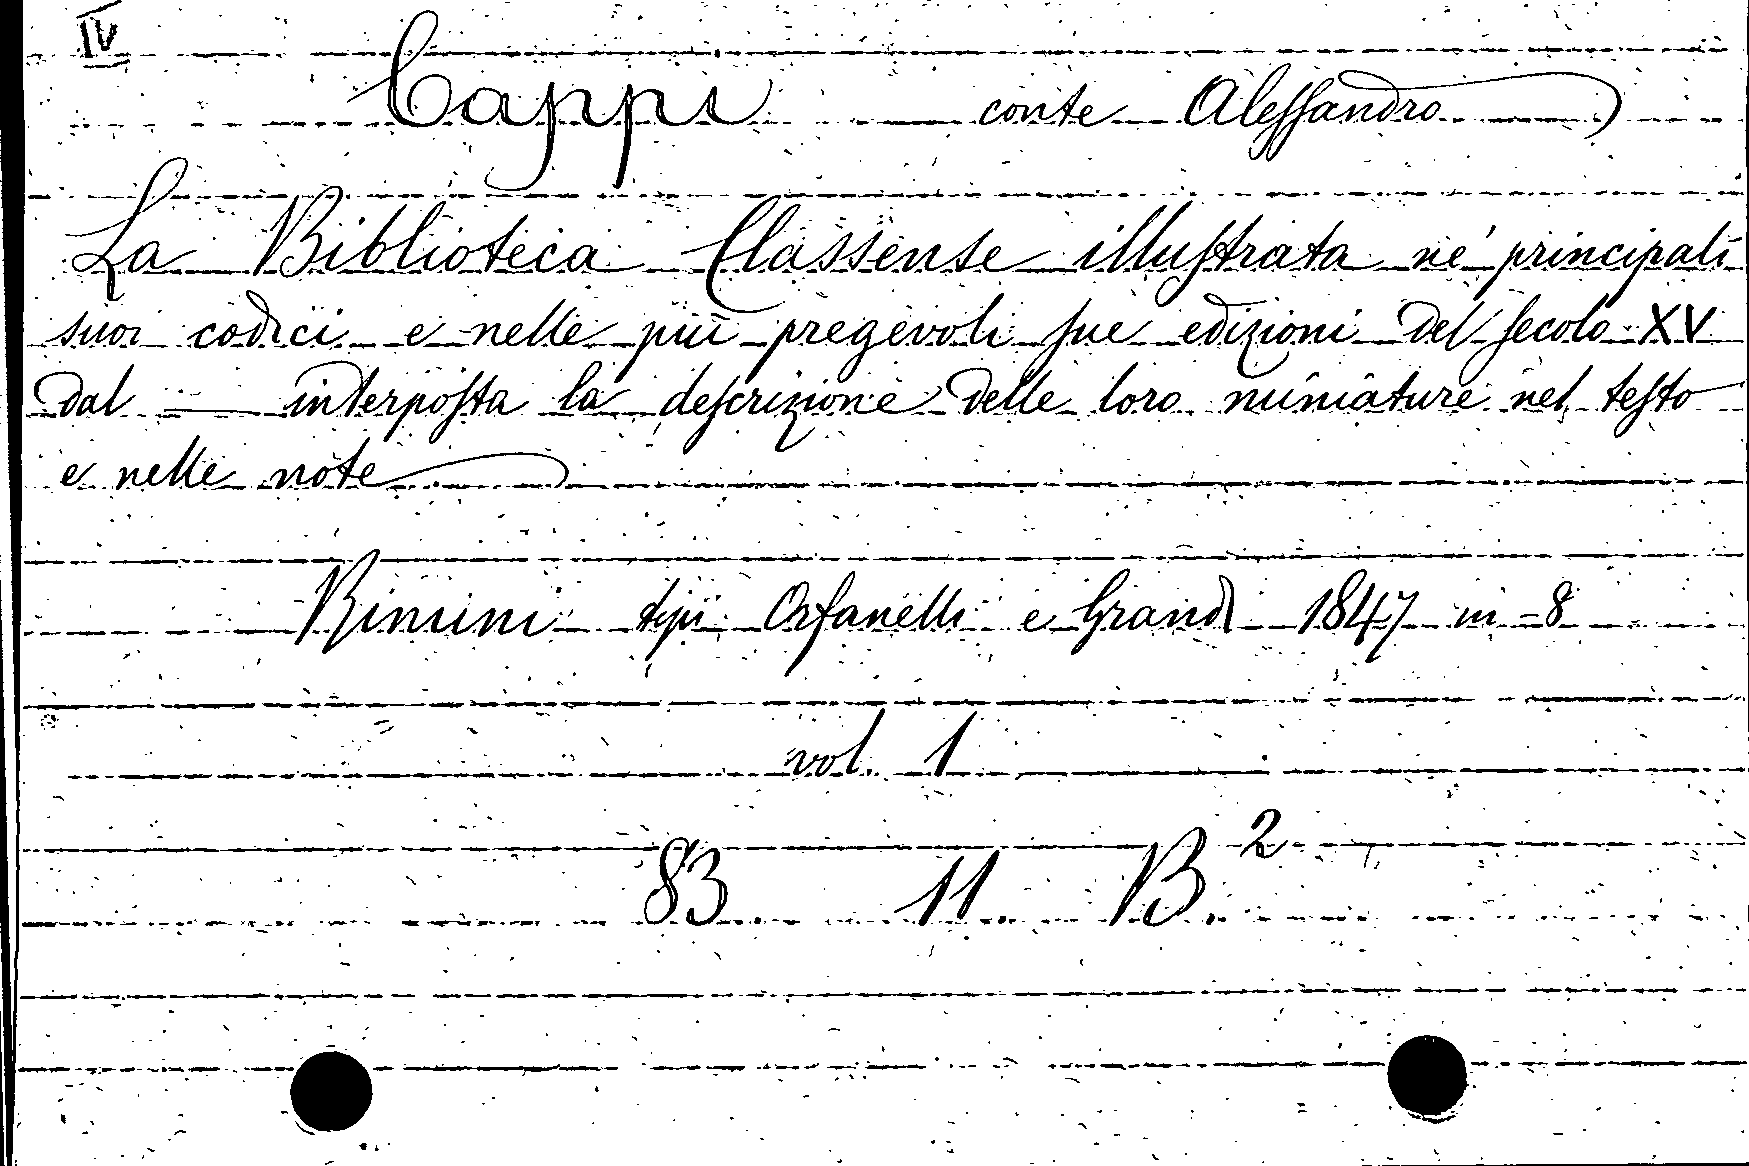 IV
Cappi conte Alessandro
La Biblioteca Classense illustrata ne' principali
suoi codici e nelle più pregevoli sue edizioni del secolo XV
dal — interposta la descrizione delle loro miniature nel testo
e nelle note
Rimini tipi Orfanelli e Grandi 1847 in-8
vol. 1
83. 11. B.²